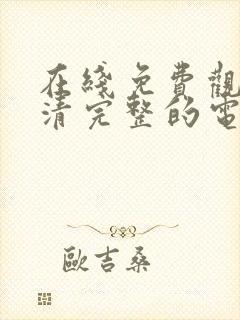 在綫免費觀
清完整的電
歐吉桑